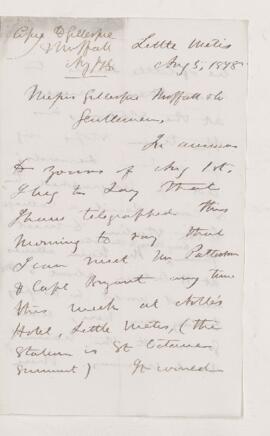 Copy to Gillespie
Moffatt
Aug 3/78
Little Metis
Aug 3, 1878
Messrs Gillespie Moffatt & Co
Gentlemen,
In answer
to yours of Aug 1st.
I beg to say that
I have telegraphed this
morning to say that
I can meet Mr Patterson
& Capt Bryant any time
this week at
Hotel, Little Metis, (the
Station is St Octaves
Summit) It would